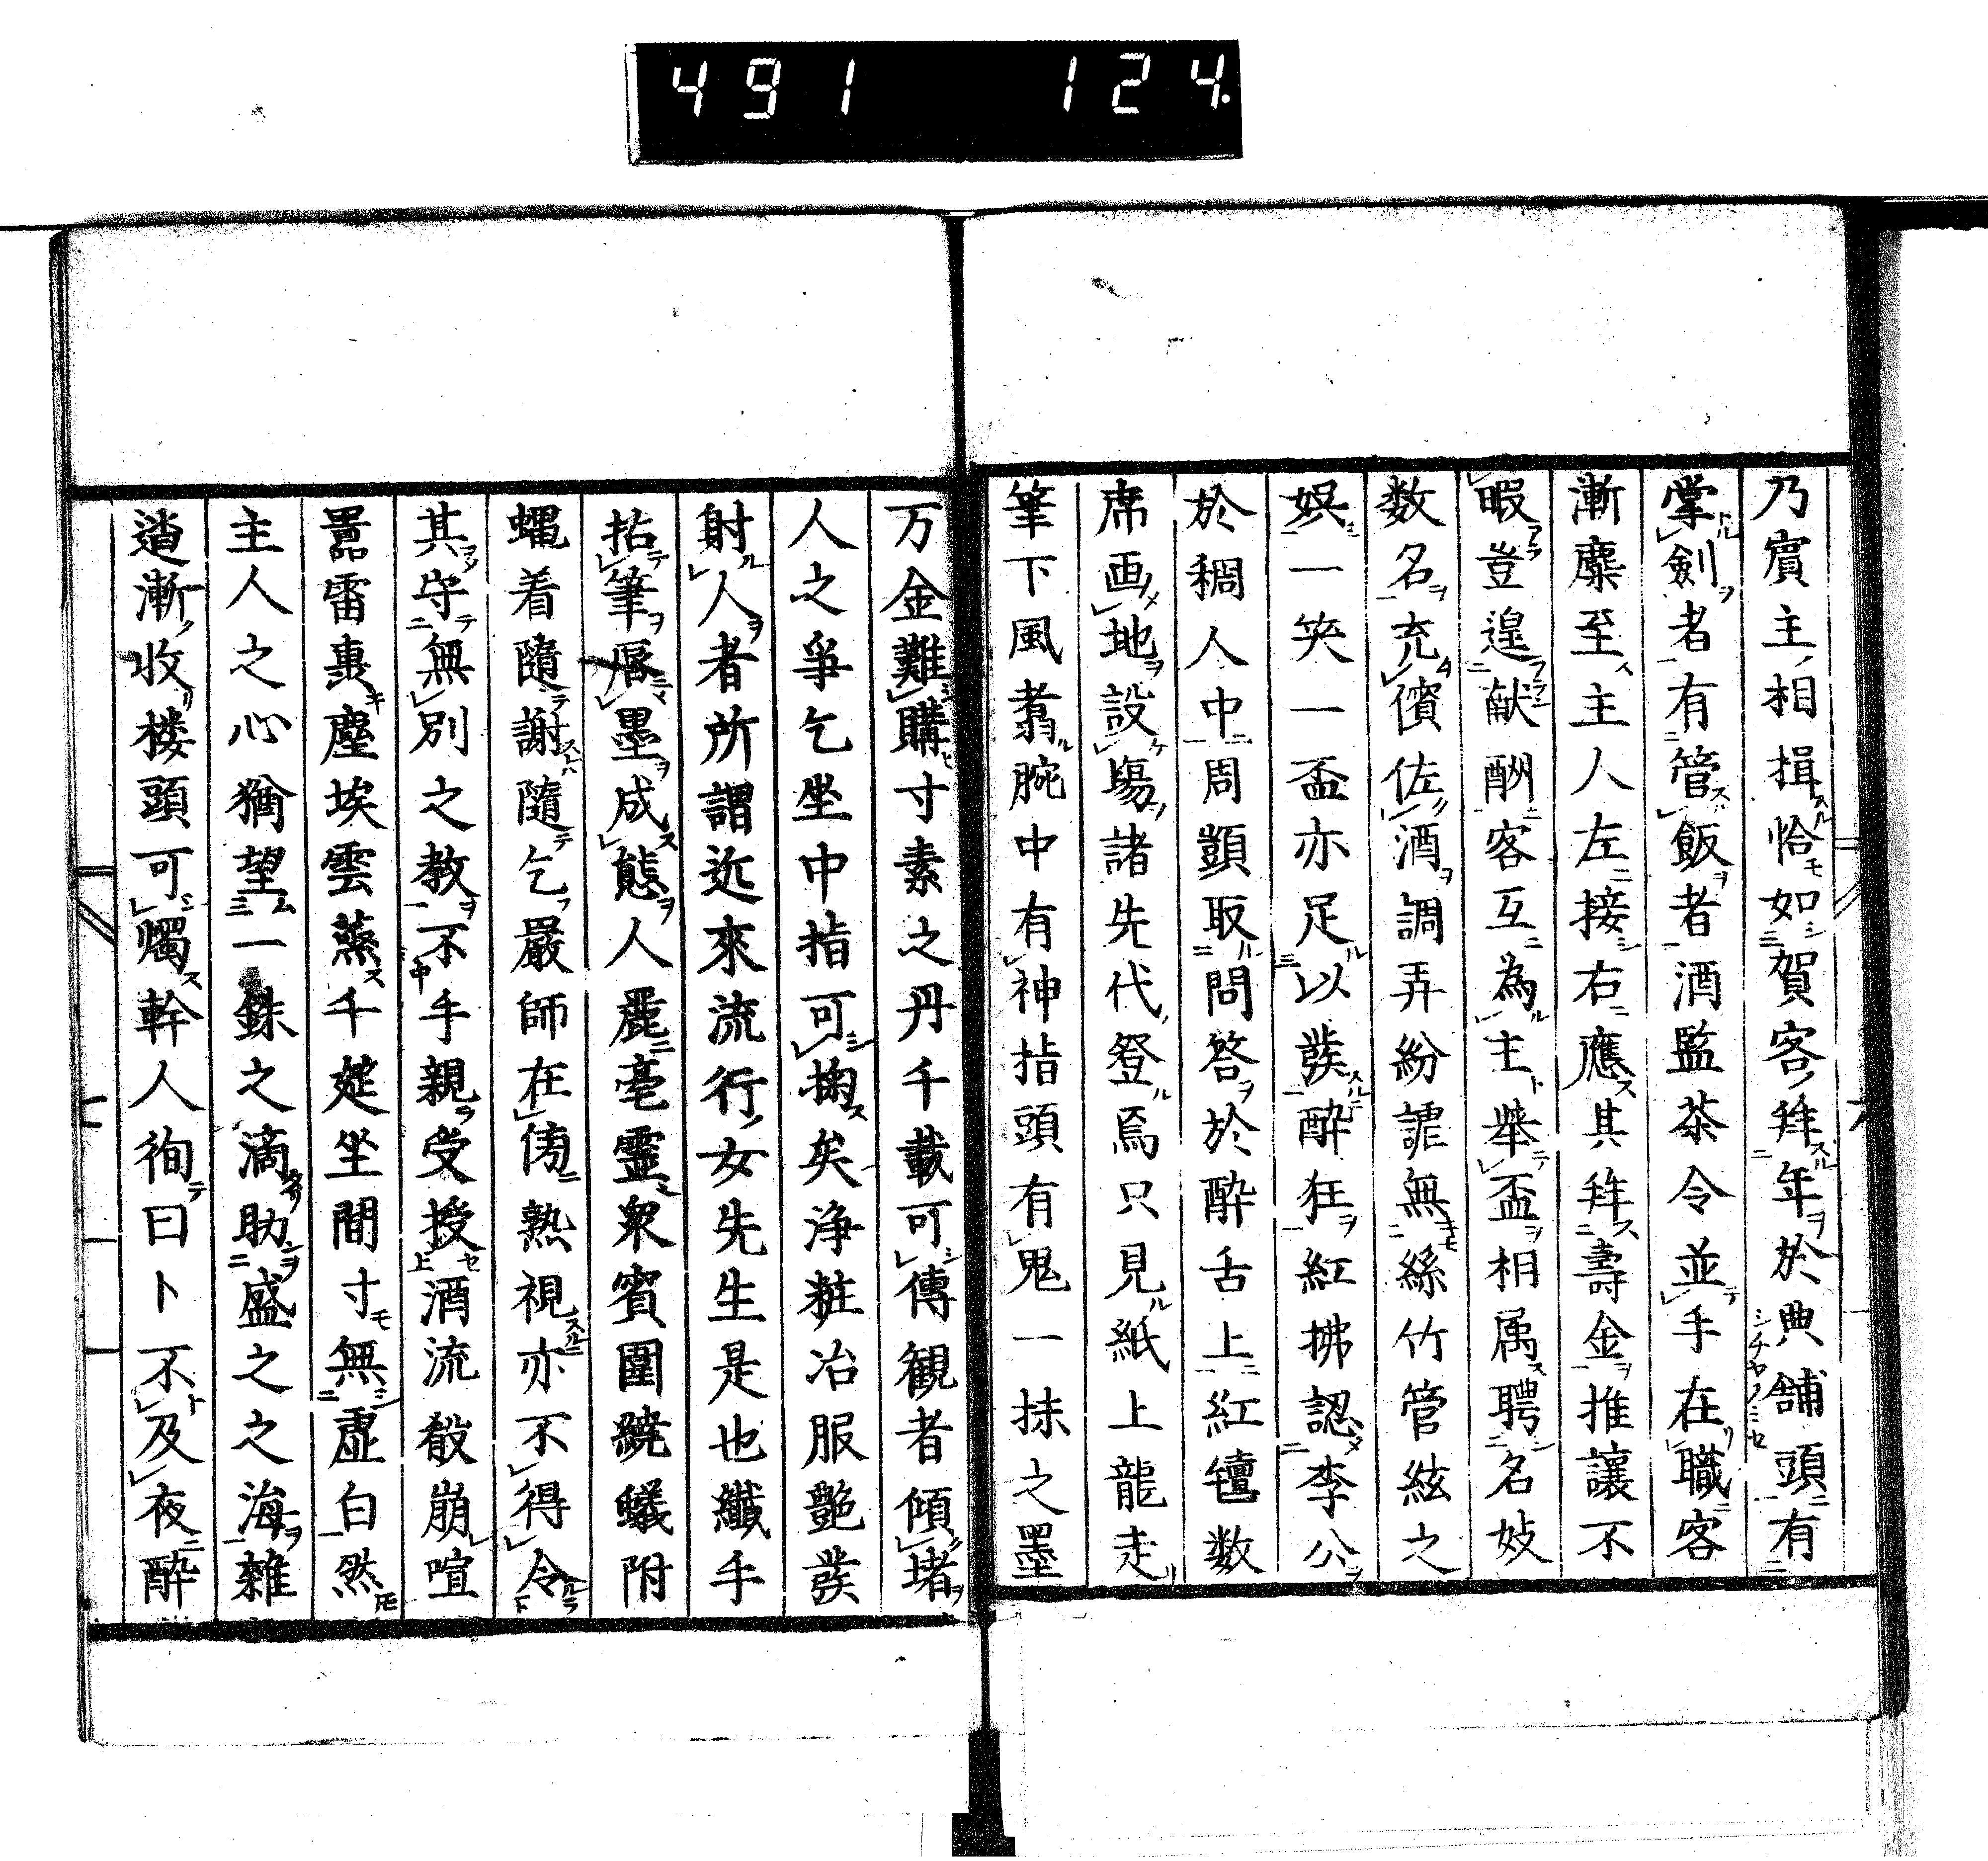 491 124
乃賓主相揖恰如賀客拜年於典舗頭有
掌劍者有管飯者酒監茶令並手在職客
漸麇至主人左接右應其拜壽金推讓不
暇豈遑献酬客互為主舉盃相属聘名妓
数名充儐佐酒調弄紛謔無絲竹管絃之
娯一笑一盃亦足以發醉狂紅拂認李公
於稠人中周顗取問答於醉舌上紅氊数
席画地設場諸先代登焉只見紙上龍走
筆下風翥腕中有神指頭有鬼一抹之墨
万金難購寸素之丹千載可傳観者傾堵
人之爭乞坐中指可掬矣浄粧冶服艶發
射人者所謂近來流行女先生是也纖手
拈筆唇墨成態人麗毫靈衆賓圍繞蟻附
蠅着隨謝隨乞嚴師在傍熟視亦不得令
其守無別之教不手親受授酒流殽崩喧
囂雷轟塵埃雲蒸千筵坐間寸無虚白然
主人之心猶望一銖之滴助盛之之海雜
遝漸收楼頭可燭幹人徇曰卜不及夜醉